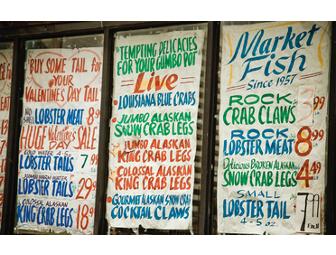 BUY SOME TAIL for
YOUR
VALENTINES DAY TAIL
LOBSTER MEAT 8
HUGE Valentines Day SALE
LOBSTER TAILS 7 99
JUMBO WARM WATER
LOBSTER TAILS 29
COLOSSAL ALASKAN
KING CRAB LEGS 18
TEMPTING DELICACIES
FOR YOUR GUMBO POT
Live
LOUISIANA BLUE CRABS
JUMBO ALASKAN
SNOW CRAB LEGS
JUMBO ALASKAN
KING CRAB LEGS
COLOSSAL ALASKAN
KING CRAB LEGS
GOURMET ALASKAN SNOW CRAB
COCKTAIL CLAWS
Market
Fish
Since 1957
ROCK
CRAB CLAWS 99
ROCK
LOBSTER MEAT 8 99
Delicious BROKEN ALASKAN
SNOW CRAB LEGS 4 49
SMALL
LOBSTER TAIL 7
4-5 oz